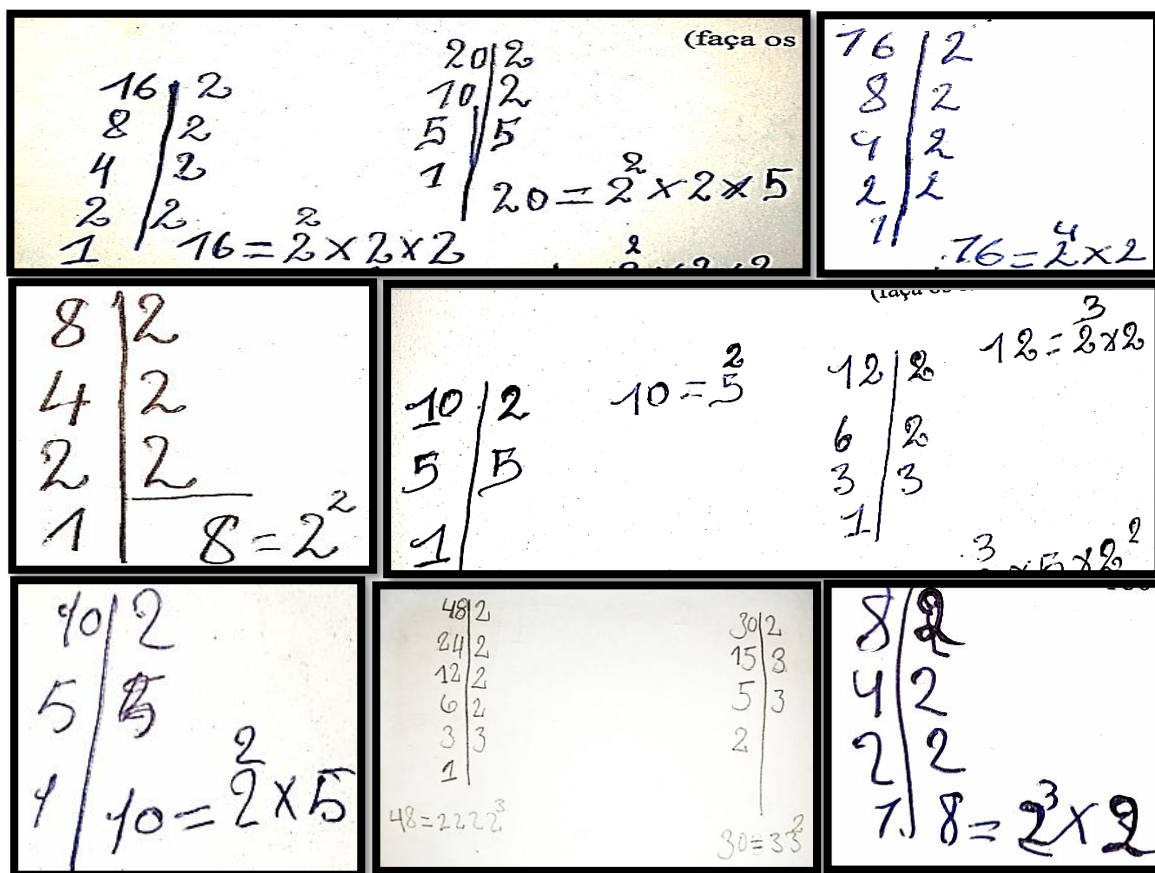 (faça os
16 | 2
8 | 2
4 | 2
2 | 2
1
16 = 2² × 2 × 2
20 | 2
10 | 2
5 | 5
1
20 = 2² × 2 × 5
16 | 2
8 | 2
4 | 2
2 | 2
1
16 = 2⁴ × 2
8 | 2
4 | 2
2 | 2
1
8 = 2²
(faça os
10 | 2
5 | 5
1
10 = 5²
12 | 2
6 | 2
3 | 3
1
12 = 2³ × 2
10 | 2
5 | 5
1
10 = 2² × 5
48 | 2
24 | 2
12 | 2
6 | 2
3 | 3
1
48 = 2222³
30 | 2
15 | 3
5 | 3
2
30 = 33²
8 | 2
4 | 2
2 | 2
1
8 = 2³ × 2